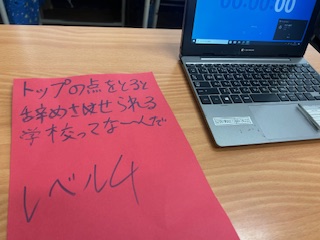 トップの点をとると
辞めさせられる
学校ってな〜んだ
レベル4